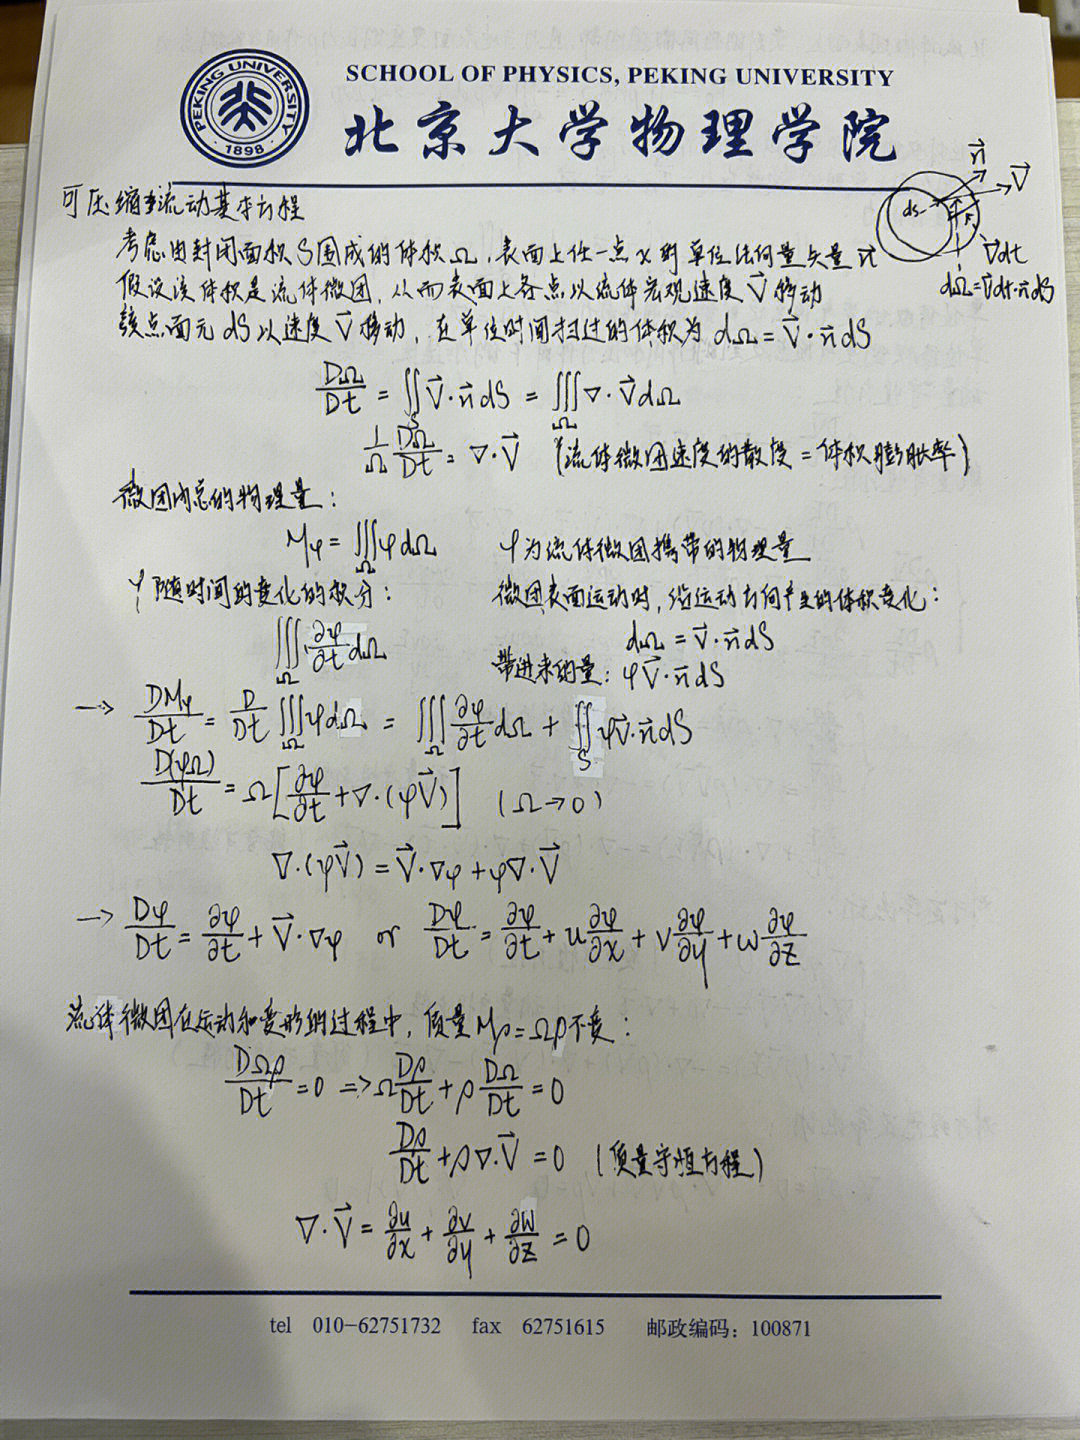 SCHOOL OF PHYSICS, PEKING UNIVERSITY
PEKING UNIVERSITY
1898
北京大学物理学院
可压缩流动基本方程
n⃗
V⃗
ds
V⃗dt
dΩ=V⃗dt·n⃗dS
考虑由封闭面积S围成的体积Ω,表面上任一点x的单位法向量矢量n⃗
假设该体积是流体微团,从而表面上各点以流体宏观速度V⃗移动
该点面元dS以速度V⃗移动,在单位时间扫过的体积为dΩ=V⃗·n⃗dS
DΩ/Dt = ∬_S V⃗·n⃗dS = ∭_Ω ∇·V⃗dΩ
1/Ω DΩ/Dt = ∇·V⃗ (流体微团速度的散度=体积膨胀率)
微团内总的物理量:
Mφ = ∭_Ω φdΩ φ为流体微团携带的物理量
φ随时间的变化的积分: 微团表面运动时,沿运动方向产生的体积变化:
∭_Ω ∂φ/∂t dΩ dΩ = V⃗·n⃗dS
带进来的量:φV⃗·n⃗dS
→ DMφ/Dt = D/Dt ∭_Ω φdΩ = ∭_Ω ∂φ/∂t dΩ + ∬_S φV⃗·n⃗dS
D(φΩ)/Dt = Ω[∂φ/∂t + ∇·(φV⃗)] (Ω→0)
∇·(φV⃗) = V⃗·∇φ + φ∇·V⃗
→ Dφ/Dt = ∂φ/∂t + V⃗·∇φ or Dφ/Dt = ∂φ/∂t + u∂φ/∂x + v∂φ/∂y + w∂φ/∂z
流体微团在运动和变形的过程中,质量Mρ=Ωρ不变:
DΩρ/Dt = 0 => Ω Dρ/Dt + ρ DΩ/Dt = 0
Dρ/Dt + ρ∇·V⃗ = 0 (质量守恒方程)
∇·V⃗ = ∂u/∂x + ∂v/∂y + ∂w/∂z = 0
tel 010-62751732 fax 62751615 邮政编码:100871